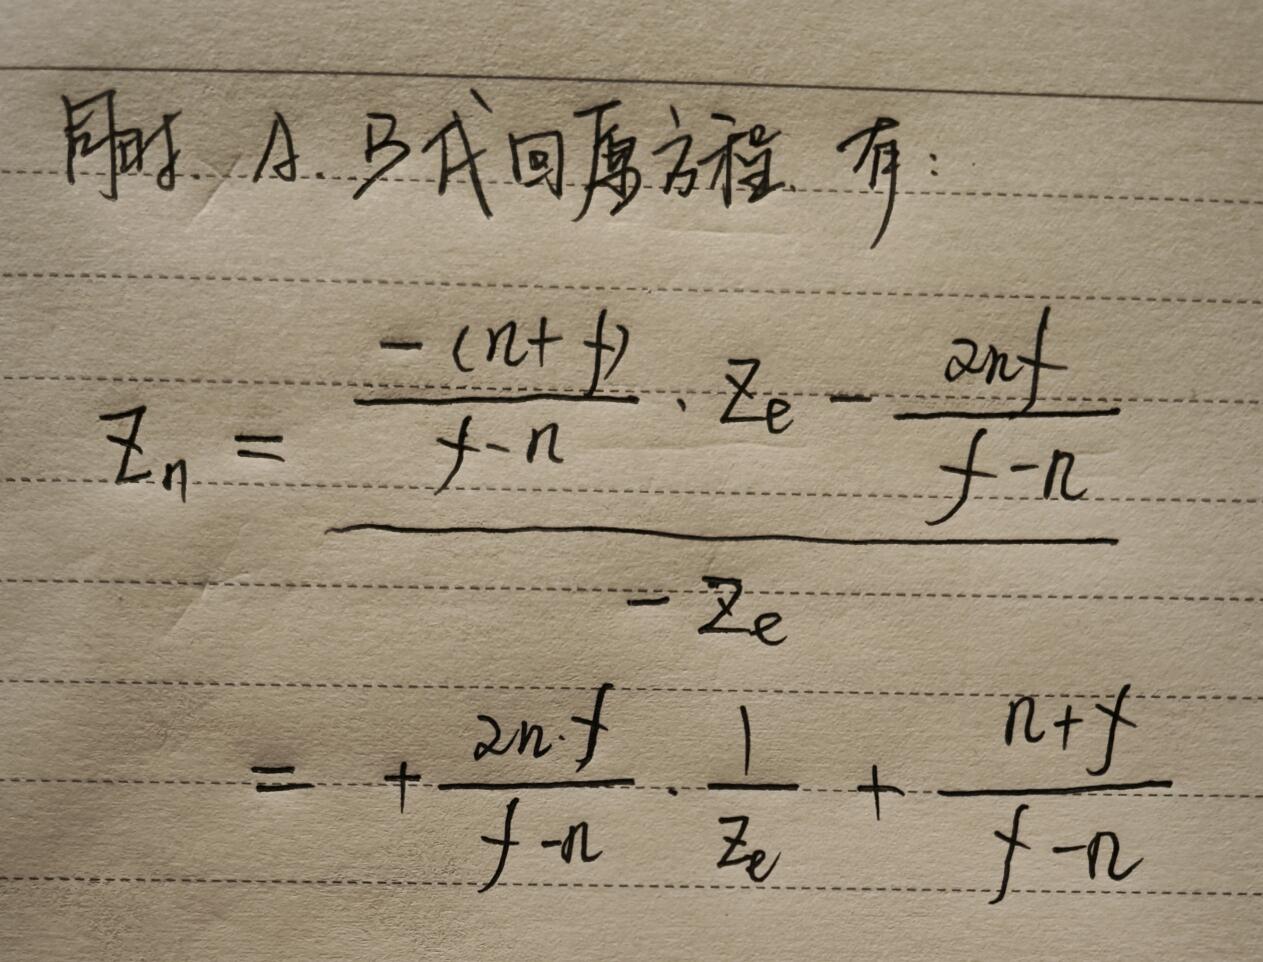 同时. A. B代回原方程, 有:
Zn = (-(n+f)/(f-n) · Ze - 2nf/(f-n)) / (-Ze)
= + 2n·f/(f-n) · 1/Ze + (n+f)/(f-n)